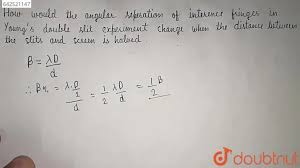 642521147
How would the angular seperation of interence fringes in
Young's double slit experiment change when the distance between
the slits and screen is halved
β = λD / d
∴ β₂ = λ D/2 / d = 1/2 λD/d = 1/2 β
doubtnut